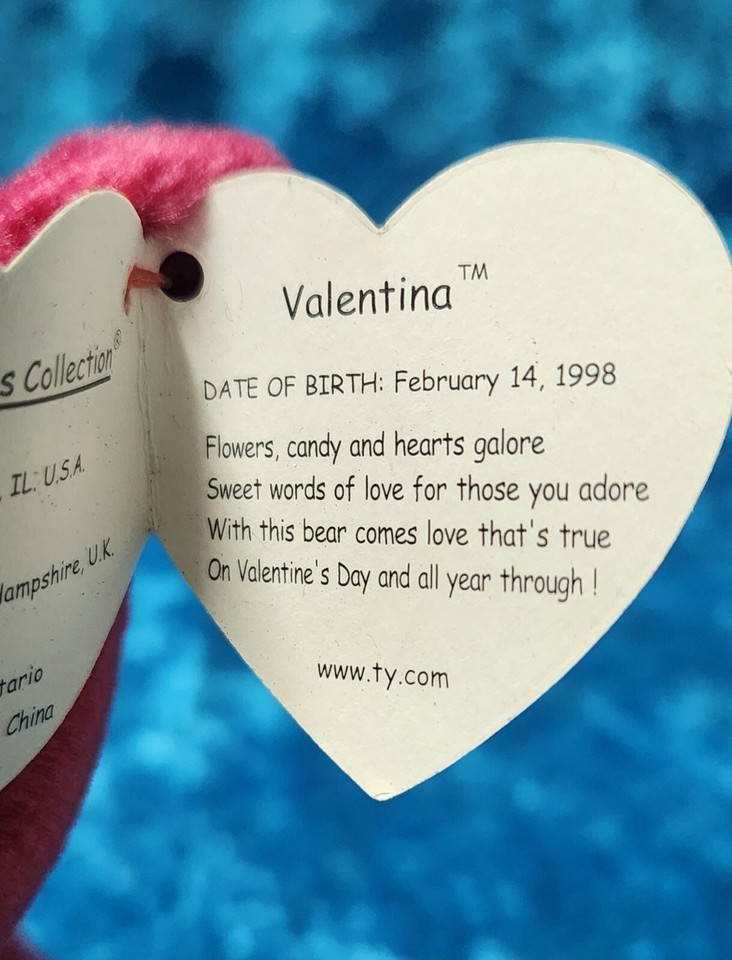 s Collection®
IL. U.S.A.
Hampshire, U.K.
tario
China
Valentina™
DATE OF BIRTH: February 14, 1998
Flowers, candy and hearts galore
Sweet words of love for those you adore
With this bear comes love that's true
On Valentine's Day and all year through !
www.ty.com